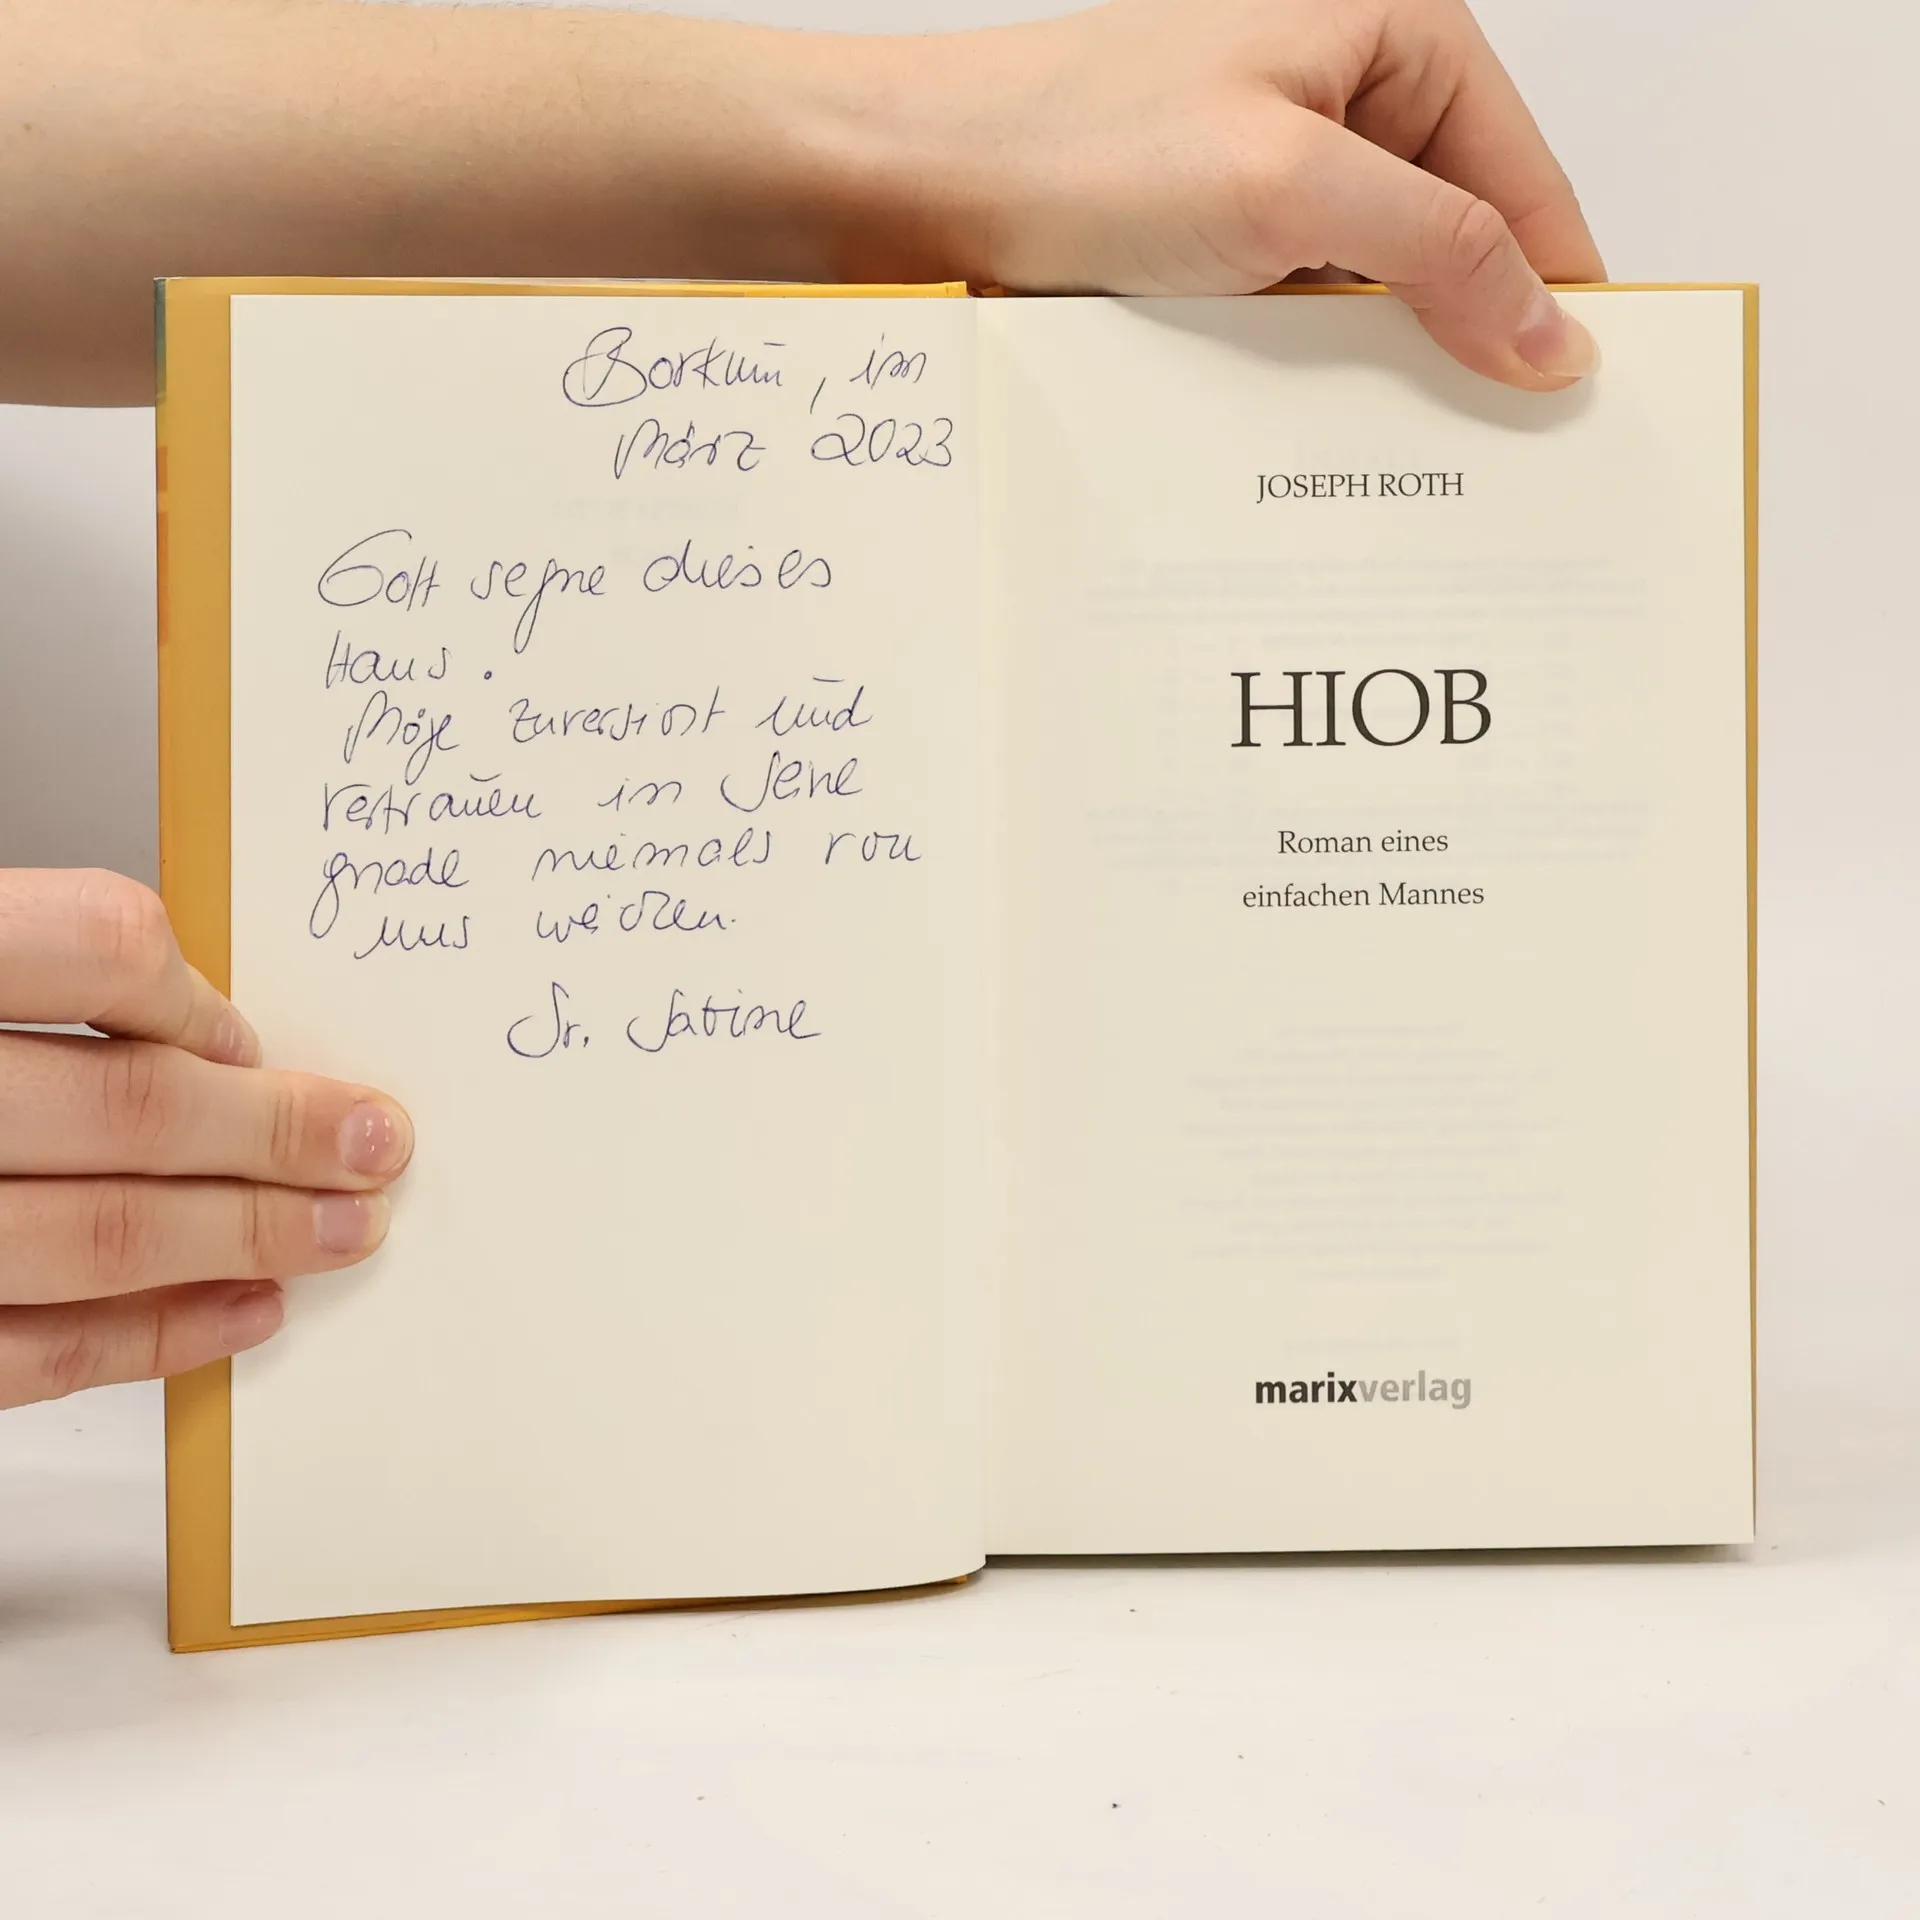 Borkum, im
März 2023
Gott segne dieses
Haus.
Möge Zuversicht und
Vertrauen in Seine
Gnade niemals von
uns weichen.
Sr. Sabine
JOSEPH ROTH
HIOB
Roman eines
einfachen Mannes
marixverlag